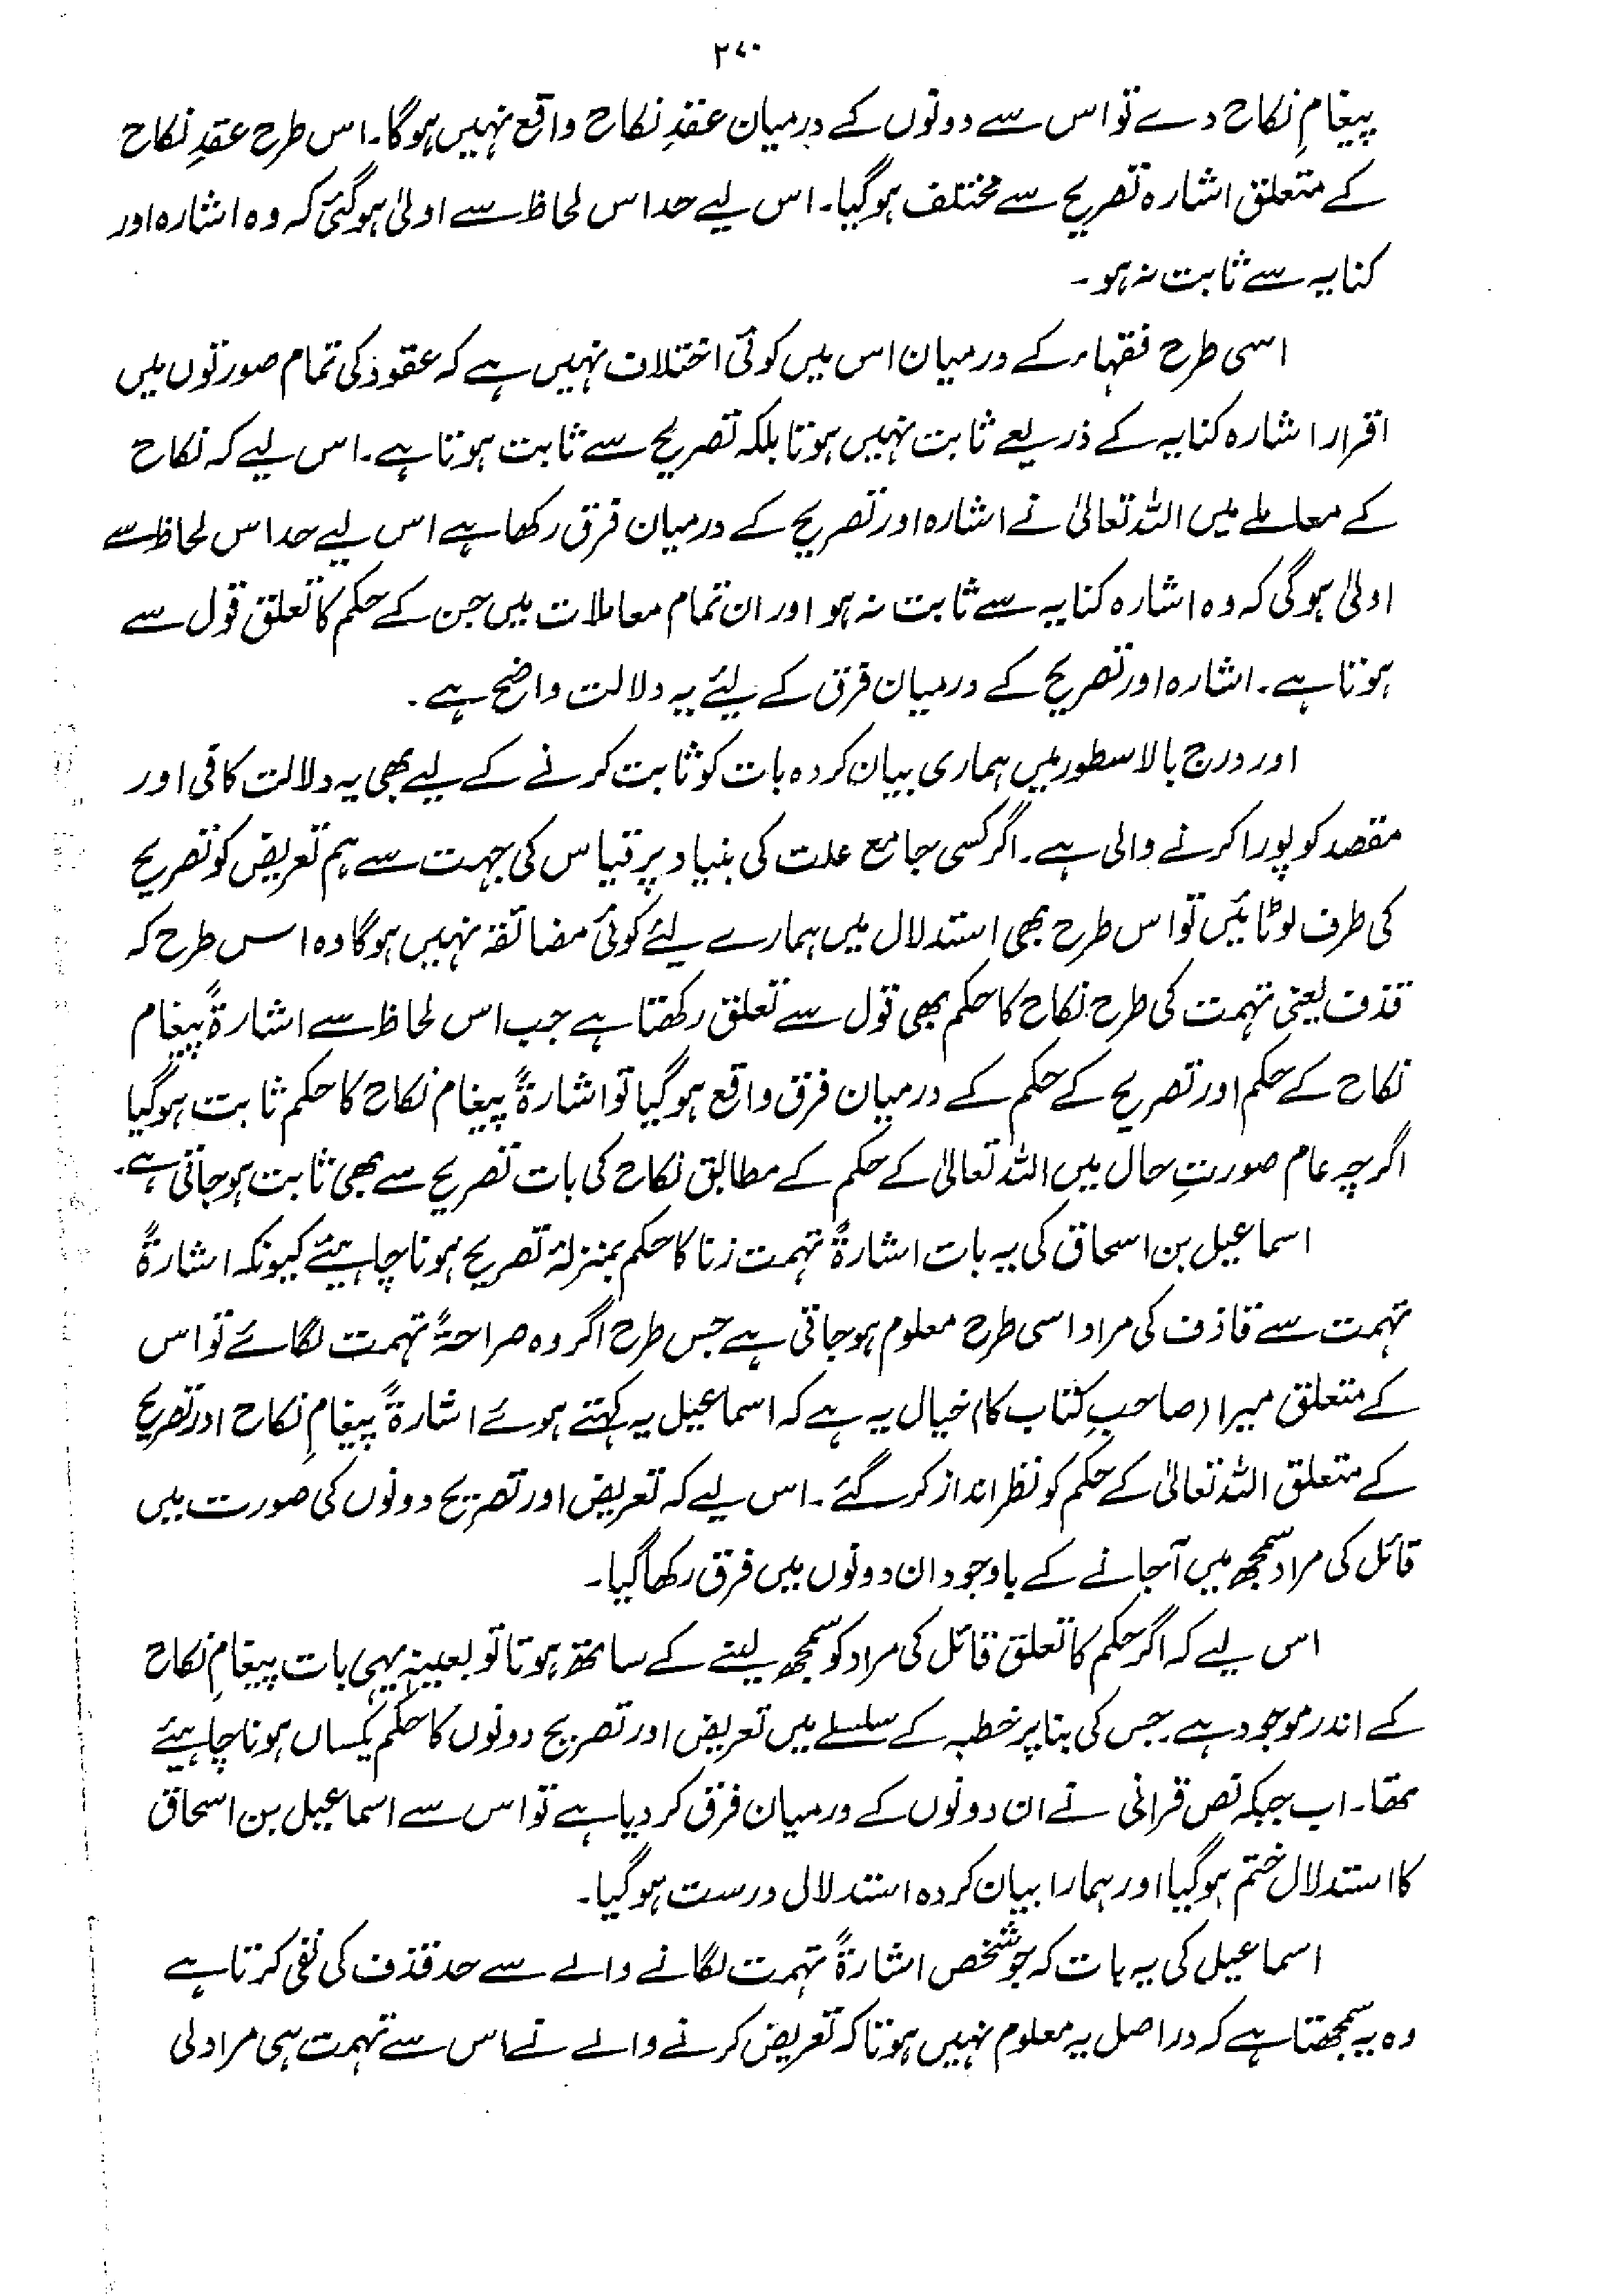 ۲۷۰
پیغامِ نکاح دے تو اس سے دونوں کے درمیان عقدِ نکاح واقع نہیں ہوگا۔ اس طرح عقدِ نکاح
کے متعلق اشارہ تصریح سے مختلف ہوگیا۔ اس لیے حد اس لحاظ سے اولیٰ ہوگئی کہ وہ اشارہ اور
کنایہ سے ثابت نہ ہو۔
اسی طرح فقہاء کے درمیان اس میں کوئی اختلاف نہیں ہے کہ عقود کی تمام صورتوں میں
اقرار اشارہ کنایہ کے ذریعے ثابت نہیں ہوتا بلکہ تصریح سے ثابت ہوتا ہے۔ اس لیے کہ نکاح
کے معاملے میں اللہ تعالیٰ نے اشارہ اور تصریح کے درمیان فرق رکھا ہے اس لیے حد اس لحاظ سے
اولیٰ ہوگی کہ وہ اشارہ کنایہ سے ثابت نہ ہو اور ان تمام معاملات میں جن کے حکم کا تعلق قول سے
ہوتا ہے۔ اشارہ اور تصریح کے درمیان فرق کے لیئے یہ دلالت واضح ہے۔
اور درج بالا سطور میں ہماری بیان کردہ بات کو ثابت کرنے کے لیے بھی یہ دلالت کافی اور
مقصد کو پورا کرنے والی ہے۔ اگر کسی جامع علت کی بنیاد پر قیاس کی جہت سے ہم تعریض کو تصریح
کی طرف لوٹائیں تو اس طرح بھی استدلال میں ہمارے لیئے کوئی مضائقہ نہیں ہوگا وہ اس طرح کہ
قذف یعنی تہمت کی طرح نکاح کا حکم بھی قول سے تعلق رکھتا ہے جب اس لحاظ سے اشارۃً پیغام
نکاح کے حکم اور تصریح کے حکم کے درمیان فرق واقع ہوگیا تو اشارۃً پیغام نکاح کا حکم ثابت ہوگیا
اگرچہ عام صورتِ حال میں اللہ تعالیٰ کے حکم کے مطابق نکاح کی بات تصریح سے بھی ثابت ہوجاتی ہے۔
اسماعیل بن اسحاق کی یہ بات اشارۃً تہمت زنا کا حکم بمنزلۂ تصریح ہونا چاہیئے کیونکہ اشارۃً
تہمت سے قاذف کی مراد اسی طرح معلوم ہوجاتی ہے جس طرح اگر وہ صراحۃً تہمت لگائے تو اس
کے متعلق میرا (صاحبِ کتاب کا) خیال یہ ہے کہ اسماعیل یہ کہتے ہوئے اشارۃً پیغامِ نکاح اور تصریح
کے متعلق اللہ تعالیٰ کے حکم کو نظر انداز کر گئے۔ اس لیے کہ تعریض اور تصریح دونوں کی صورت میں
قائل کی مراد سمجھ میں آجانے کے باوجود ان دونوں میں فرق رکھا گیا۔
اس لیے کہ اگر حکم کا تعلق قائل کی مراد کو سمجھ لینے کے ساتھ ہوتا تو بعینہٖ یہی بات پیغامِ نکاح
کے اندر موجود ہے۔ جس کی بنا پر خطبہ کے سلسلے میں تعریض اور تصریح دونوں کا حکم یکساں ہونا چاہیئے
تھا۔ اب جبکہ نص قرانی نے ان دونوں کے درمیان فرق کر دیا ہے تو اس سے اسماعیل بن اسحاق
کا استدلال ختم ہوگیا اور ہمارا بیان کردہ استدلال درست ہوگیا۔
اسماعیل کی یہ بات کہ جو شخص اشارۃً تہمت لگانے والے سے حد قذف کی نفی کرتا ہے
وہ یہ سمجھتا ہے کہ دراصل یہ معلوم نہیں ہوتا کہ تعریض کرنے والے نے اس سے تہمت ہی مراد لی